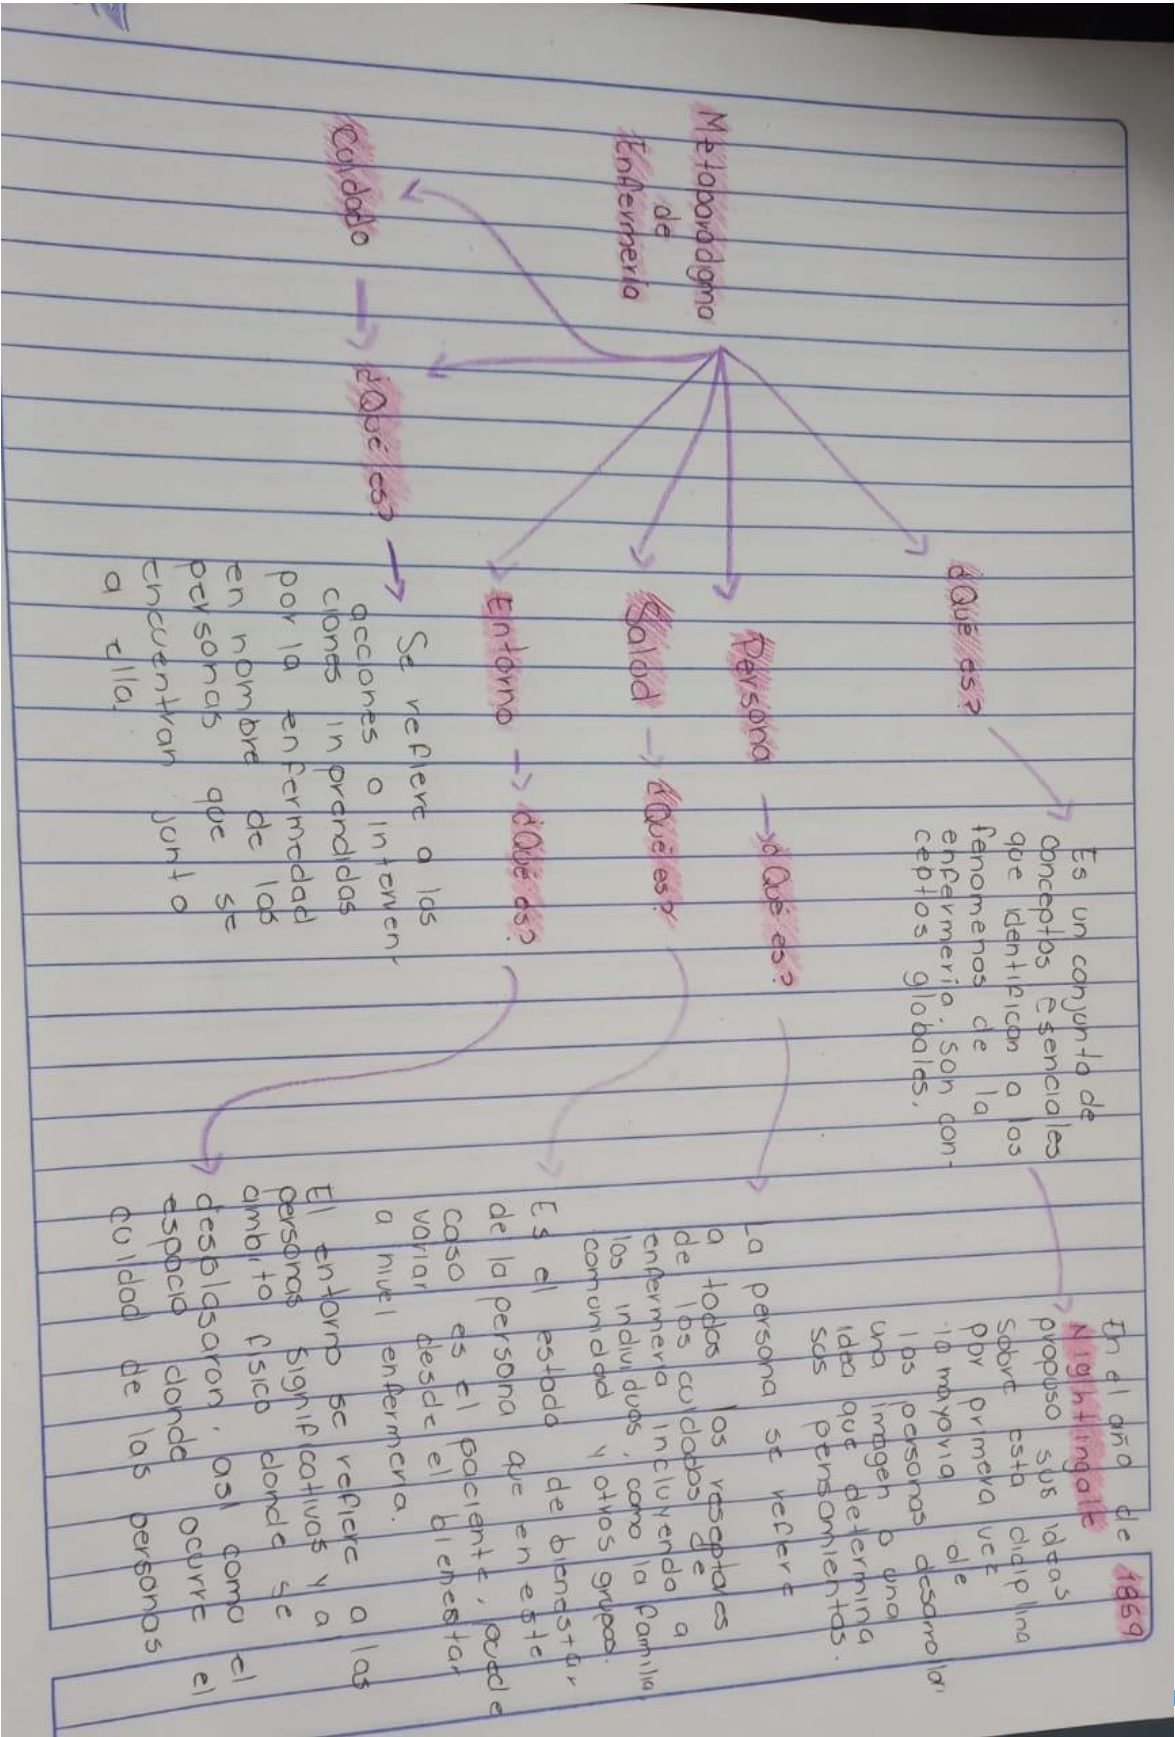 Metaparadigma
de
Enfermería
¿Qué es?
Es un conjunto de
conceptos esenciales
que identifican a los
fenomenos de la
enfermeria. Son con-
ceptos globales.
En el año de 1859
Nightingale
propuso sus ideas
sobre esta diciplina
por primera vez
la mayoria de
las personas desarrollan
una imagen o una
idea que determina
sus pensamientos.
Persona
¿Qué es?
La persona se refiere
a todos los reseptores
de los cuidados de
enfermería incluyendo a
los individuos, como la familia,
comunidad y otros grupos.
Salud
¿Qué es?
Es el estado de bienestar
de la persona que en este
caso es el paciente, puede
variar desde el bienestar
a nivel enfermería.
Entorno
¿Qué es?
El entorno se refiere a las
personas significativas y al
ambito fisico donde se
desplasaron, asi como el
espacio donde ocurre el
cuidad de las personas
Cuidado
¿Qué es?
Se refiere a las
acciones o interven-
ciones inprendidas
por la enfermedad
en nombre de las
personas que se
encuentran junto
a ella.